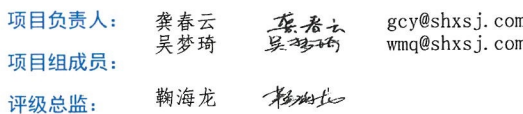 项目负责人： 龚春云 龚春云 gcy@shxsj.com
吴梦琦 吴梦琦 wmq@shxsj.com
项目组成员：
评级总监： 鞠海龙 鞠海龙